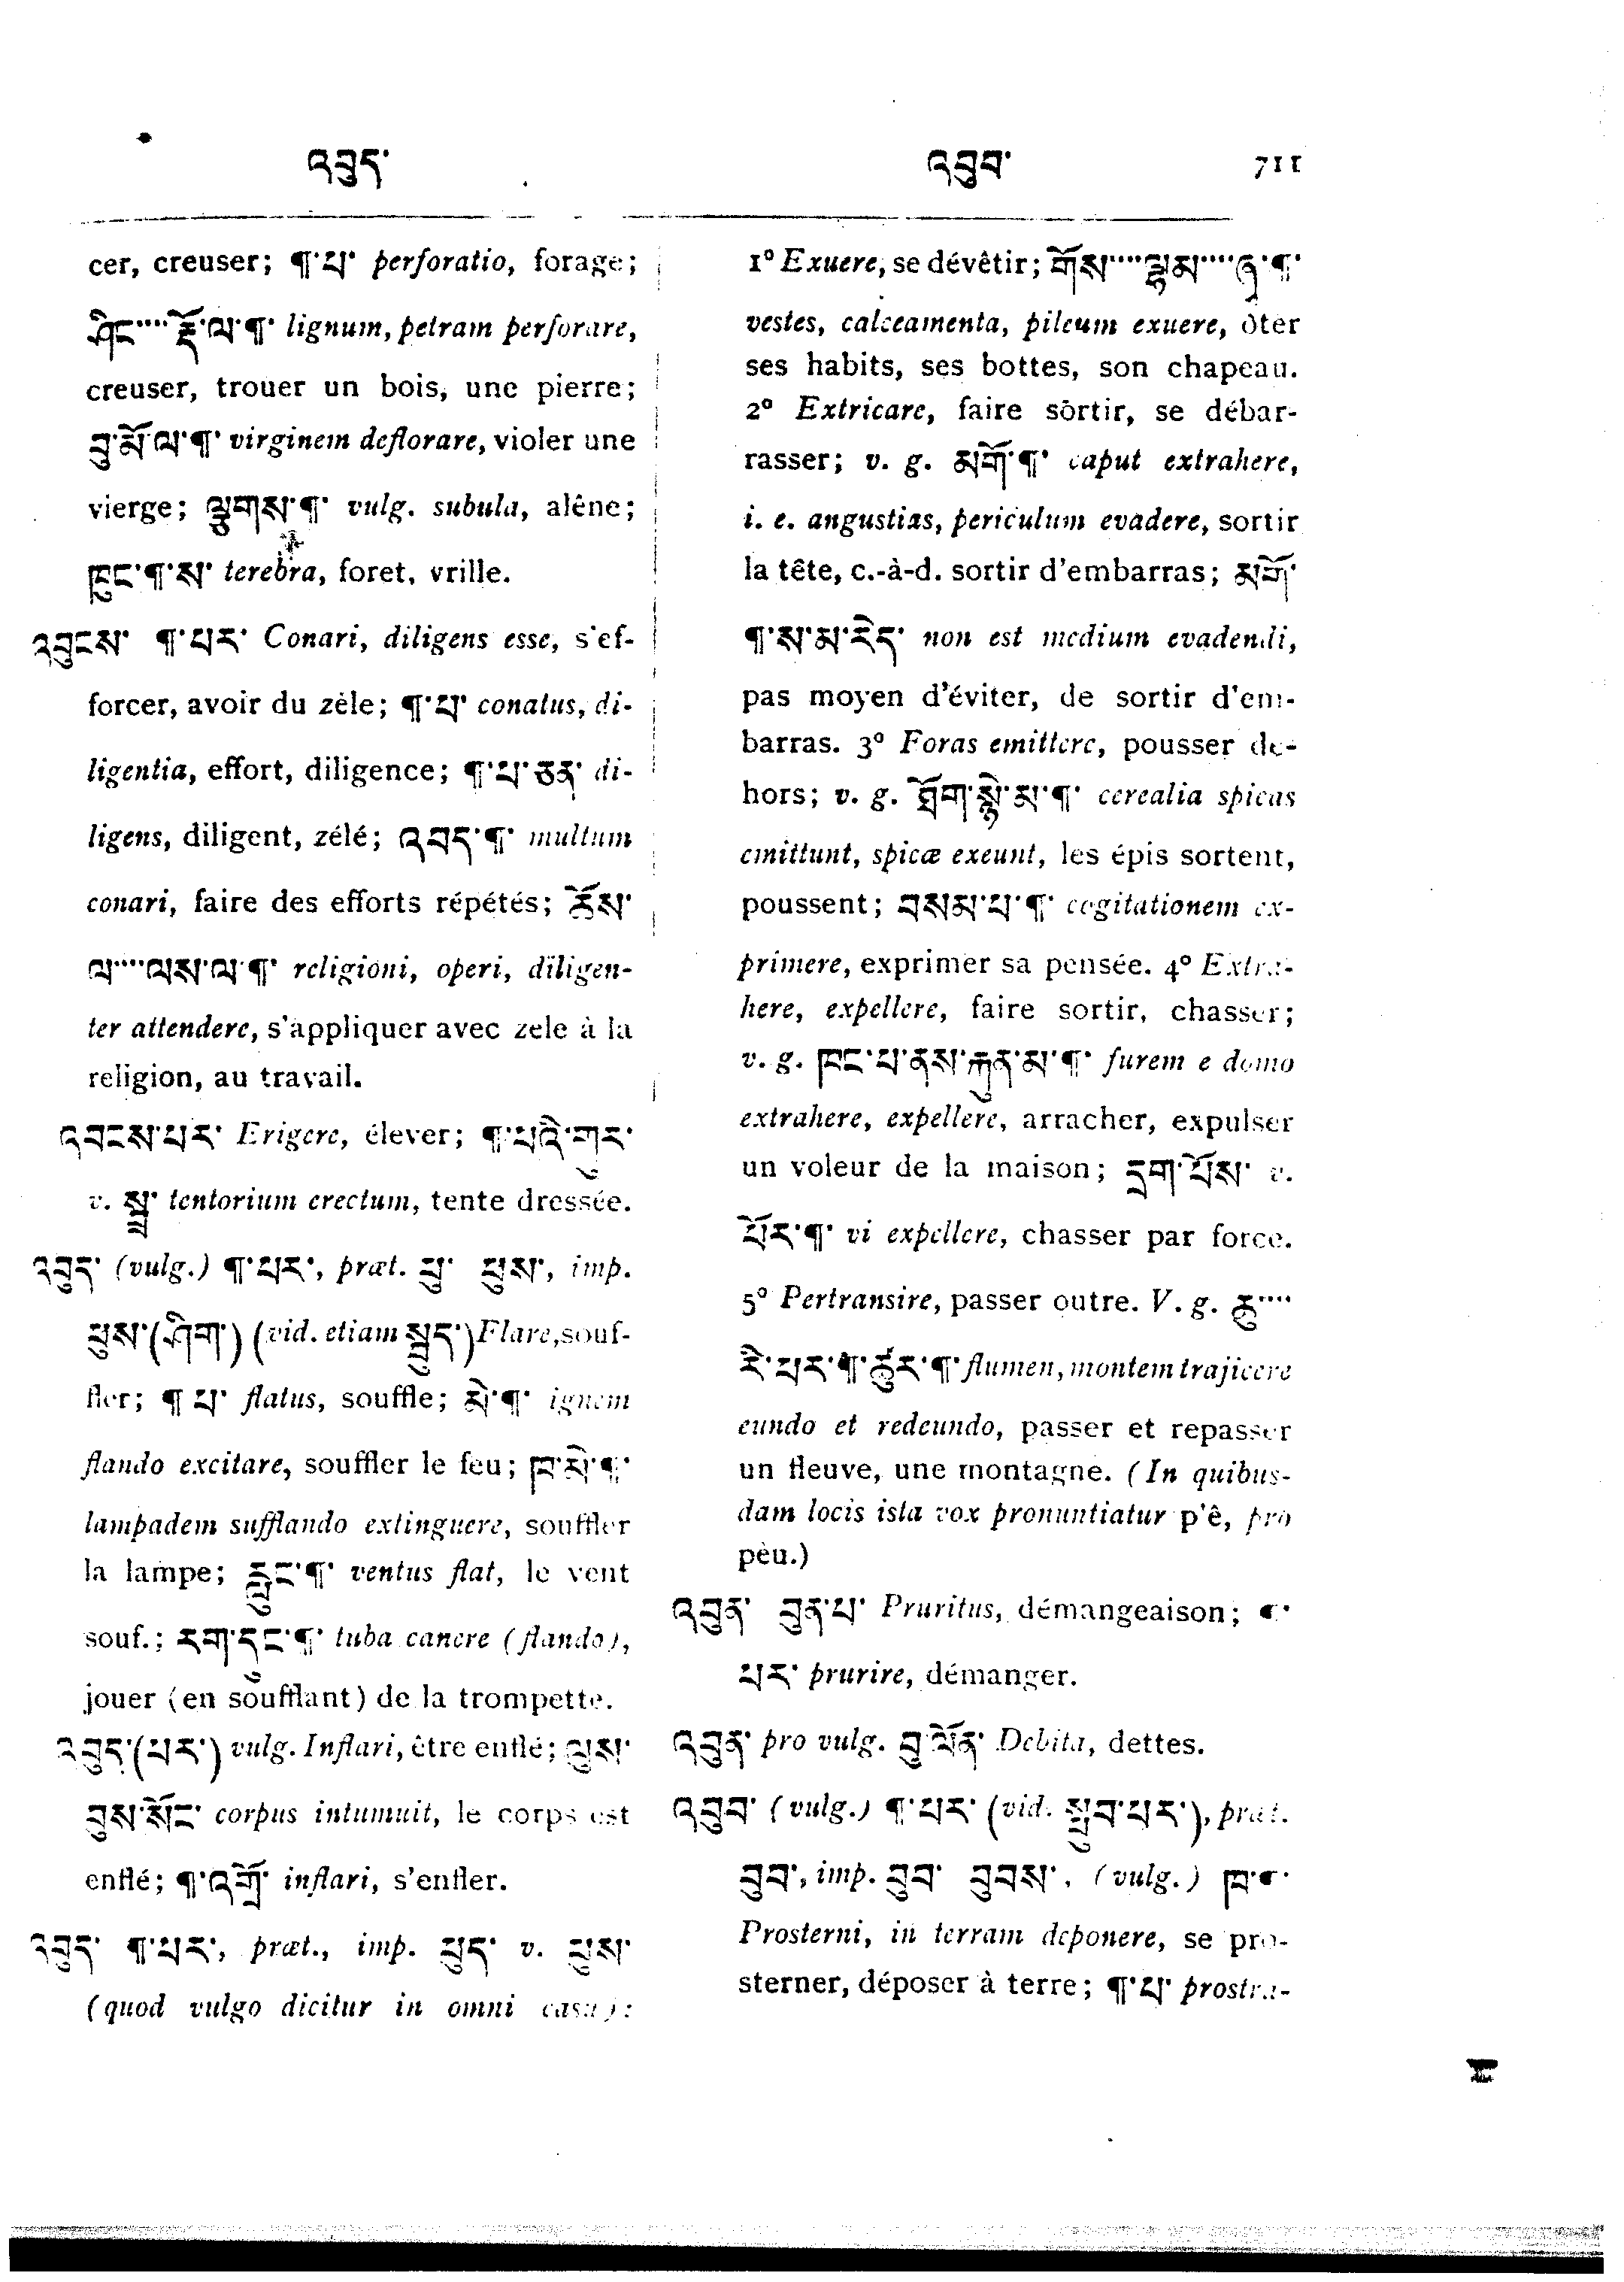 འབུད་ འབུབ་ 711
cer, creuser; ¶་པ་ perforatio, forage;
ཤིང་····རྡོ་ལ་¶་ lignum, petram perforare,
creuser, trouer un bois, une pierre;
བུ་མོ་ལ་¶་ virginem deflorare, violer une
vierge; ལྕུགས་¶་ vulg. subula, alêne;
ཁུང་¶་ས་ terebra, foret, vrille.
འབུངས་ ¶་པར་ Conari, diligens esse, s'ef-
forcer, avoir du zèle; ¶་པ་ conatus, di-
ligentia, effort, diligence; ¶་པ་ཅན་ di-
ligens, diligent, zélé; འབད་¶་ multum
conari, faire des efforts répétés; ཆོས་
ལ་····ལས་ལ་¶་ religioni, operi, diligen-
ter attendere, s'appliquer avec zele à la
religion, au travail.
འབངས་པར་ Erigere, élever; ¶་པའི་གུར་
v. སྦྲ་ tentorium erectum, tente dressée.
འབུད་ (vulg.) ¶་པར་, præt. ཕུ་ ཕུས་, imp.
ཕུས་(ཤིག་) (vid. etiam སྦུད་) Flare, souf-
fler; ¶ པ་ flatus, souffle; མེ་¶་ ignem
flando excitare, souffler le feu; ཁ་མེ་¶་
lampadem sufflando extinguere, souffler
la lampe; རླུང་¶་ ventus flat, le vent
souf.; རག་དུང་¶་ tuba canere (flando),
jouer (en soufflant) de la trompette.
འབུད་(པར་) vulg. Inflari, être enflé; ལུས་
བུས་སོང་ corpus intumuit, le corps est
enflé; ¶་འགྲོ་ inflari, s'enfler.
འབུད་ ¶་པར་, præt., imp. ཕུད་ v. ཕུས་
(quod vulgo dicitur in omni casu):
1º Exuere, se dévêtir; གོས་····ལྷམ་····ཞྭ་¶་
vestes, calceamenta, pileum exuere, ôter
ses habits, ses bottes, son chapeau.
2º Extricare, faire sortir, se débar-
rasser; v. g. མགོ་¶་ caput extrahere,
i. e. angustias, periculum evadere, sortir
la tête, c.-à-d. sortir d'embarras; མགོ་
¶་ས་མ་རེད་ non est medium evadendi,
pas moyen d'éviter, de sortir d'em-
barras. 3º Foras emittere, pousser de-
hors; v. g. ཐོག་སྙེ་མ་¶་ cerealia spicas
emittunt, spicæ exeunt, les épis sortent,
poussent; བསམ་པ་¶་ cogitationem ex-
primere, exprimer sa pensée. 4º Extra-
here, expellere, faire sortir, chasser;
v. g. ཁང་པ་ནས་རྐུན་མ་¶་ furem e domo
extrahere, expellere, arracher, expulser
un voleur de la maison; དྲག་པོས་ v.
པོར་¶་ vi expellere, chasser par force.
5º Pertransire, passer outre. V. g. ཆུ་····
རི་པར་¶་ཚུར་¶་ flumen, montem trajicere
eundo et redeundo, passer et repasser
un fleuve, une montagne. (In quibus-
dam locis ista vox pronuntiatur p'ê, pro
pèu.)
འབུན་ བུན་པ་ Pruritus, démangeaison; ¶་
པར་ prurire, démanger.
འབུན་ pro vulg. བུ་ལོན་ Debita, dettes.
འབུབ་ (vulg.) ¶་པར་ (vid. སྦུབ་པར་), præt.
བུབ་, imp. བུབ་ བུབས་, (vulg.) ཁ་¶་
Prosterni, in terram deponere, se pro-
sterner, déposer à terre; ¶་པ་ prostra-